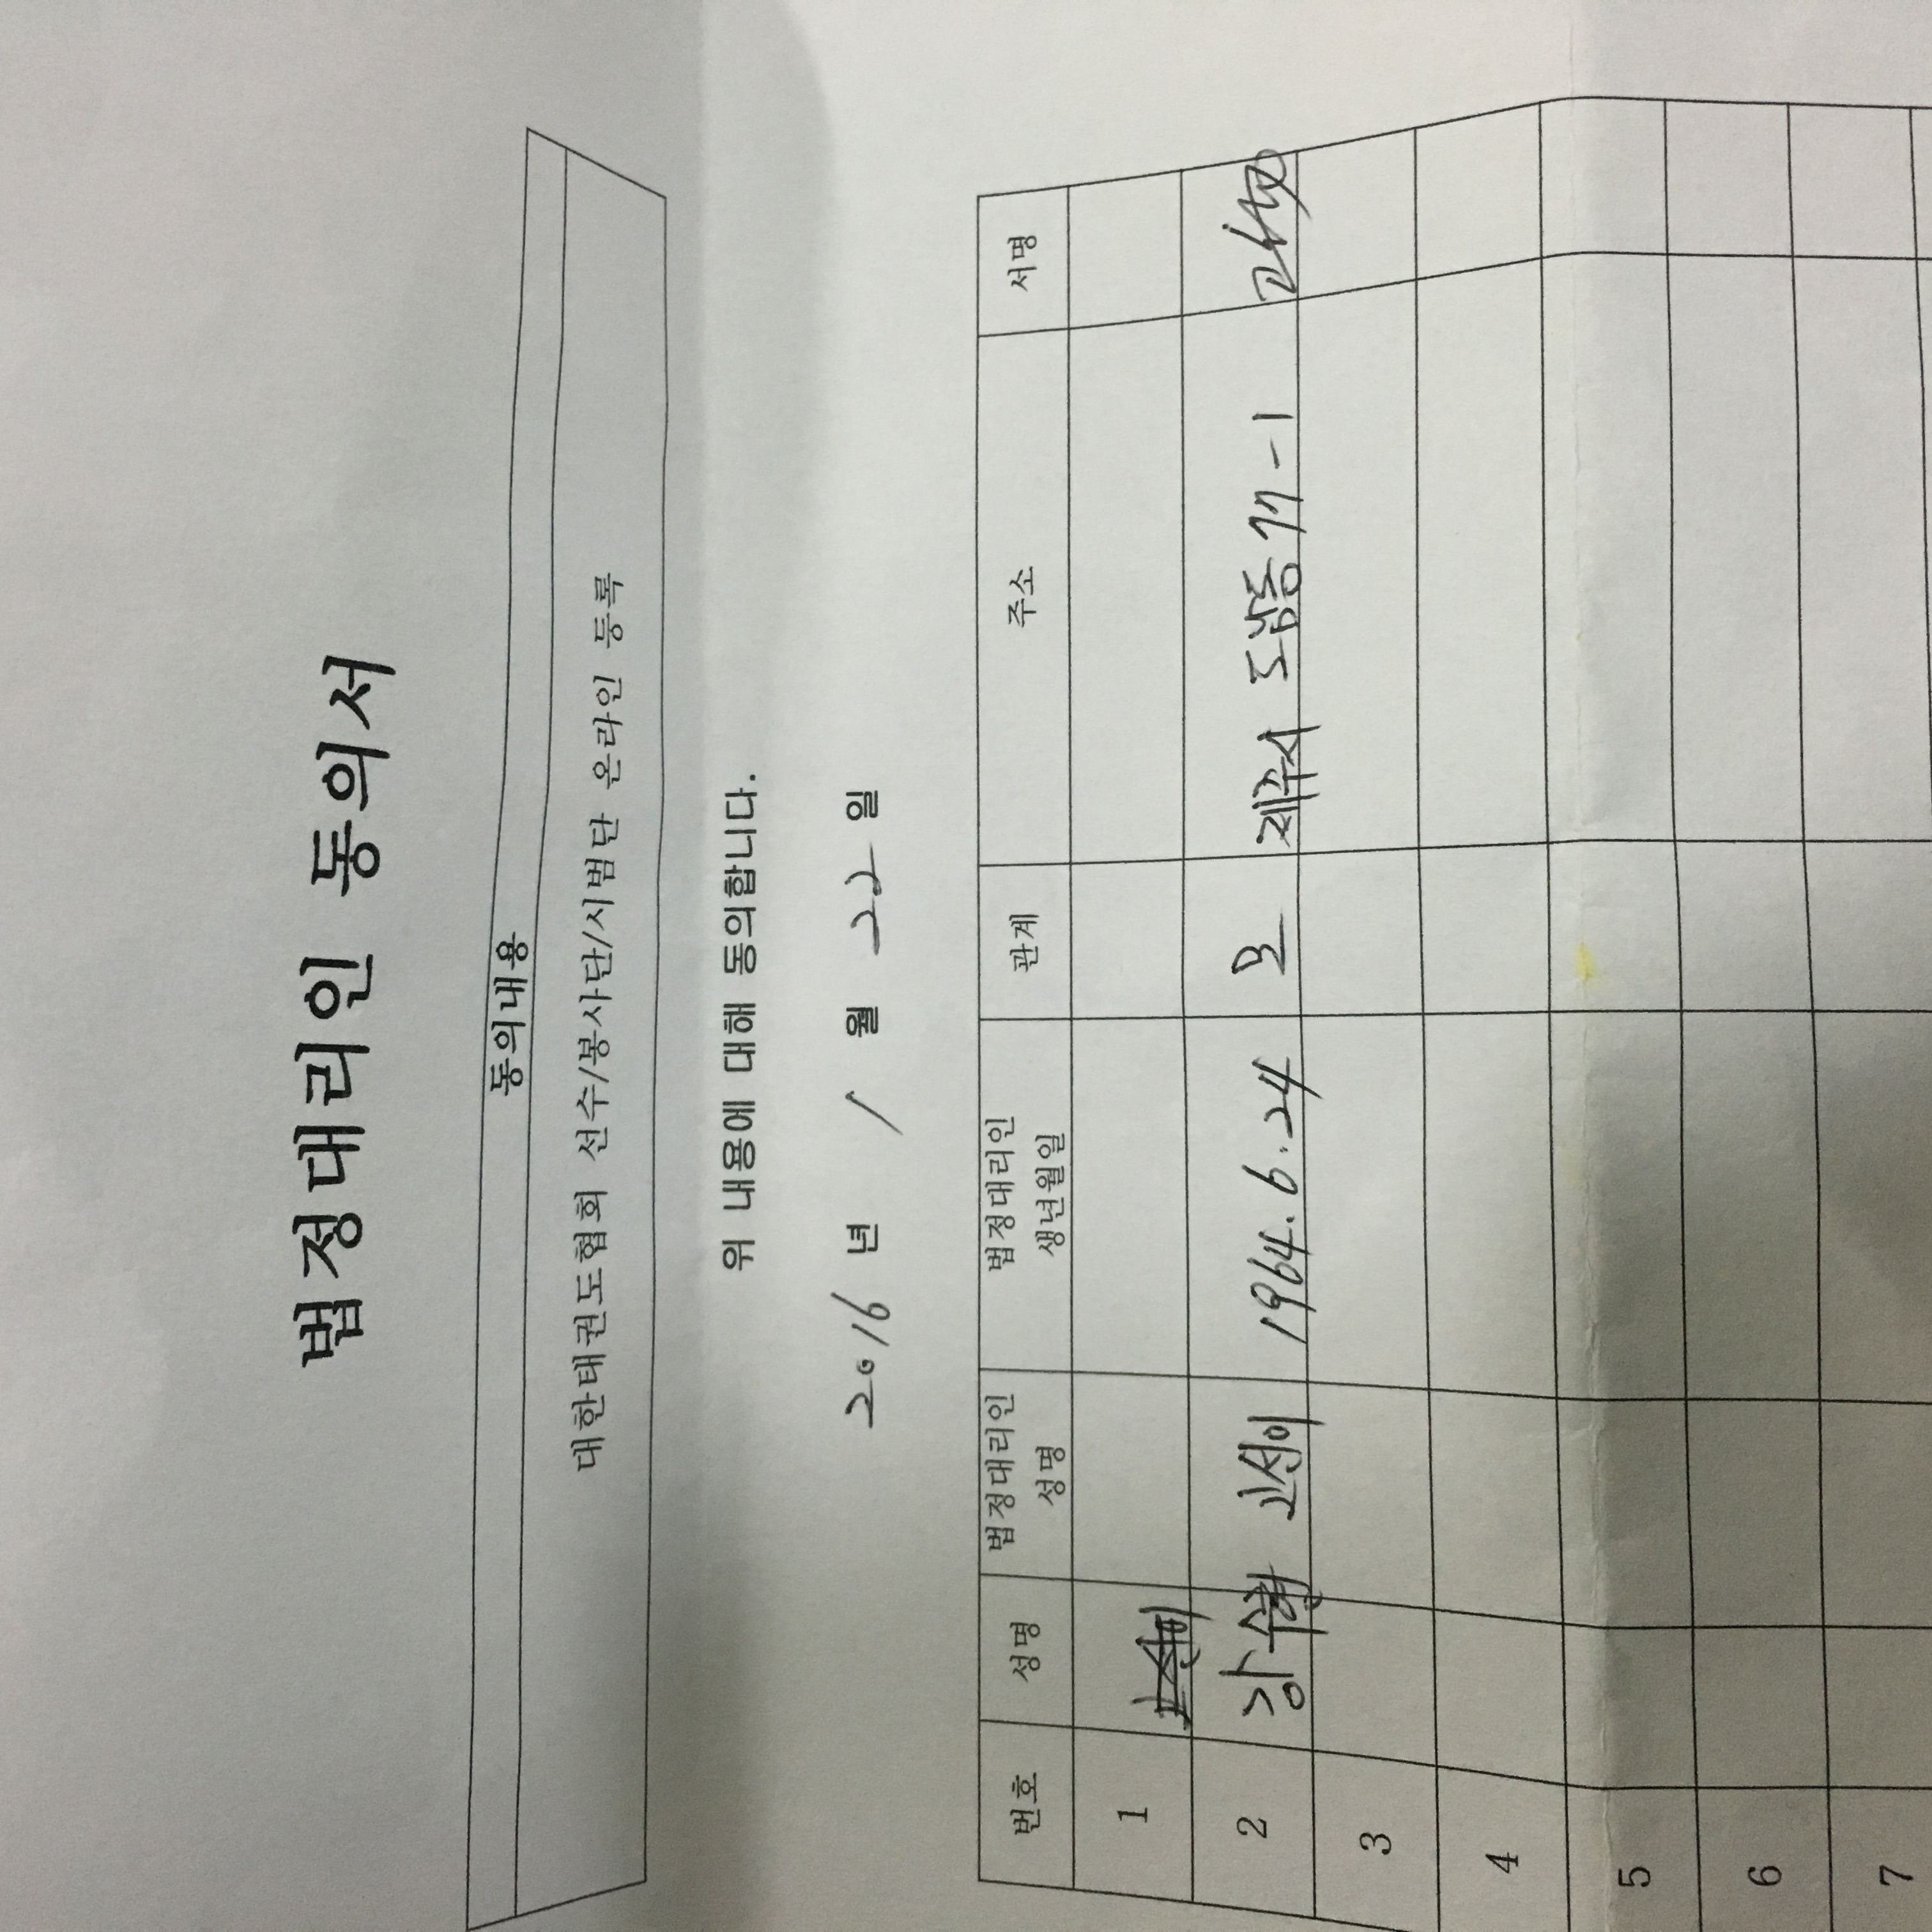 법정대리인 동의서
동의내용
대한태권도협회 선수/봉사단/시범단 온라인 등록
위 내용에 대해 동의합니다.
2016 년 1 월 22 일
번호 성명 법정대리인 성명 법정대리인 생년월일 관계 주소 서명
1
2 강수 고선이 1964.6.24 모 제주시 도남동 -1
3
4
5
6
7